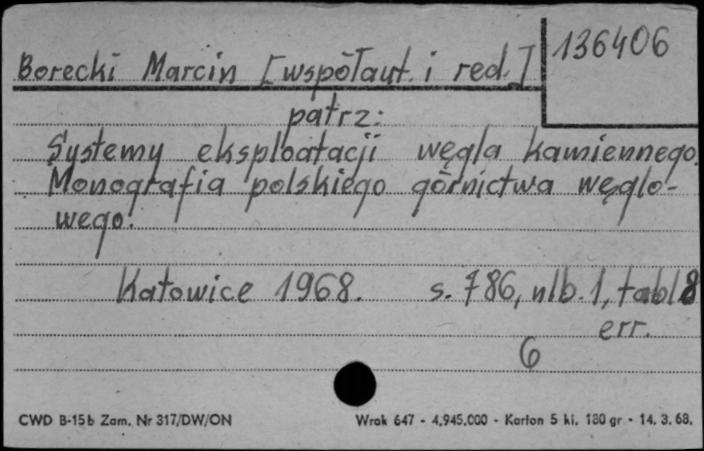 136406
Borecki Marcin [współaut. i red.]
patrz:
Systemy eksploatacji węgla kamiennego.
Monografia polskiego górnictwa węglo-
wego.
Katowice 1968. s. 786, nlb. 1, tabl 8
err.
6
CWD B-15b Zam. Nr 317/DW/ON Wrak 647 - 4.945.000 - Karton 5 kl. 180 gr - 14. 3. 68.